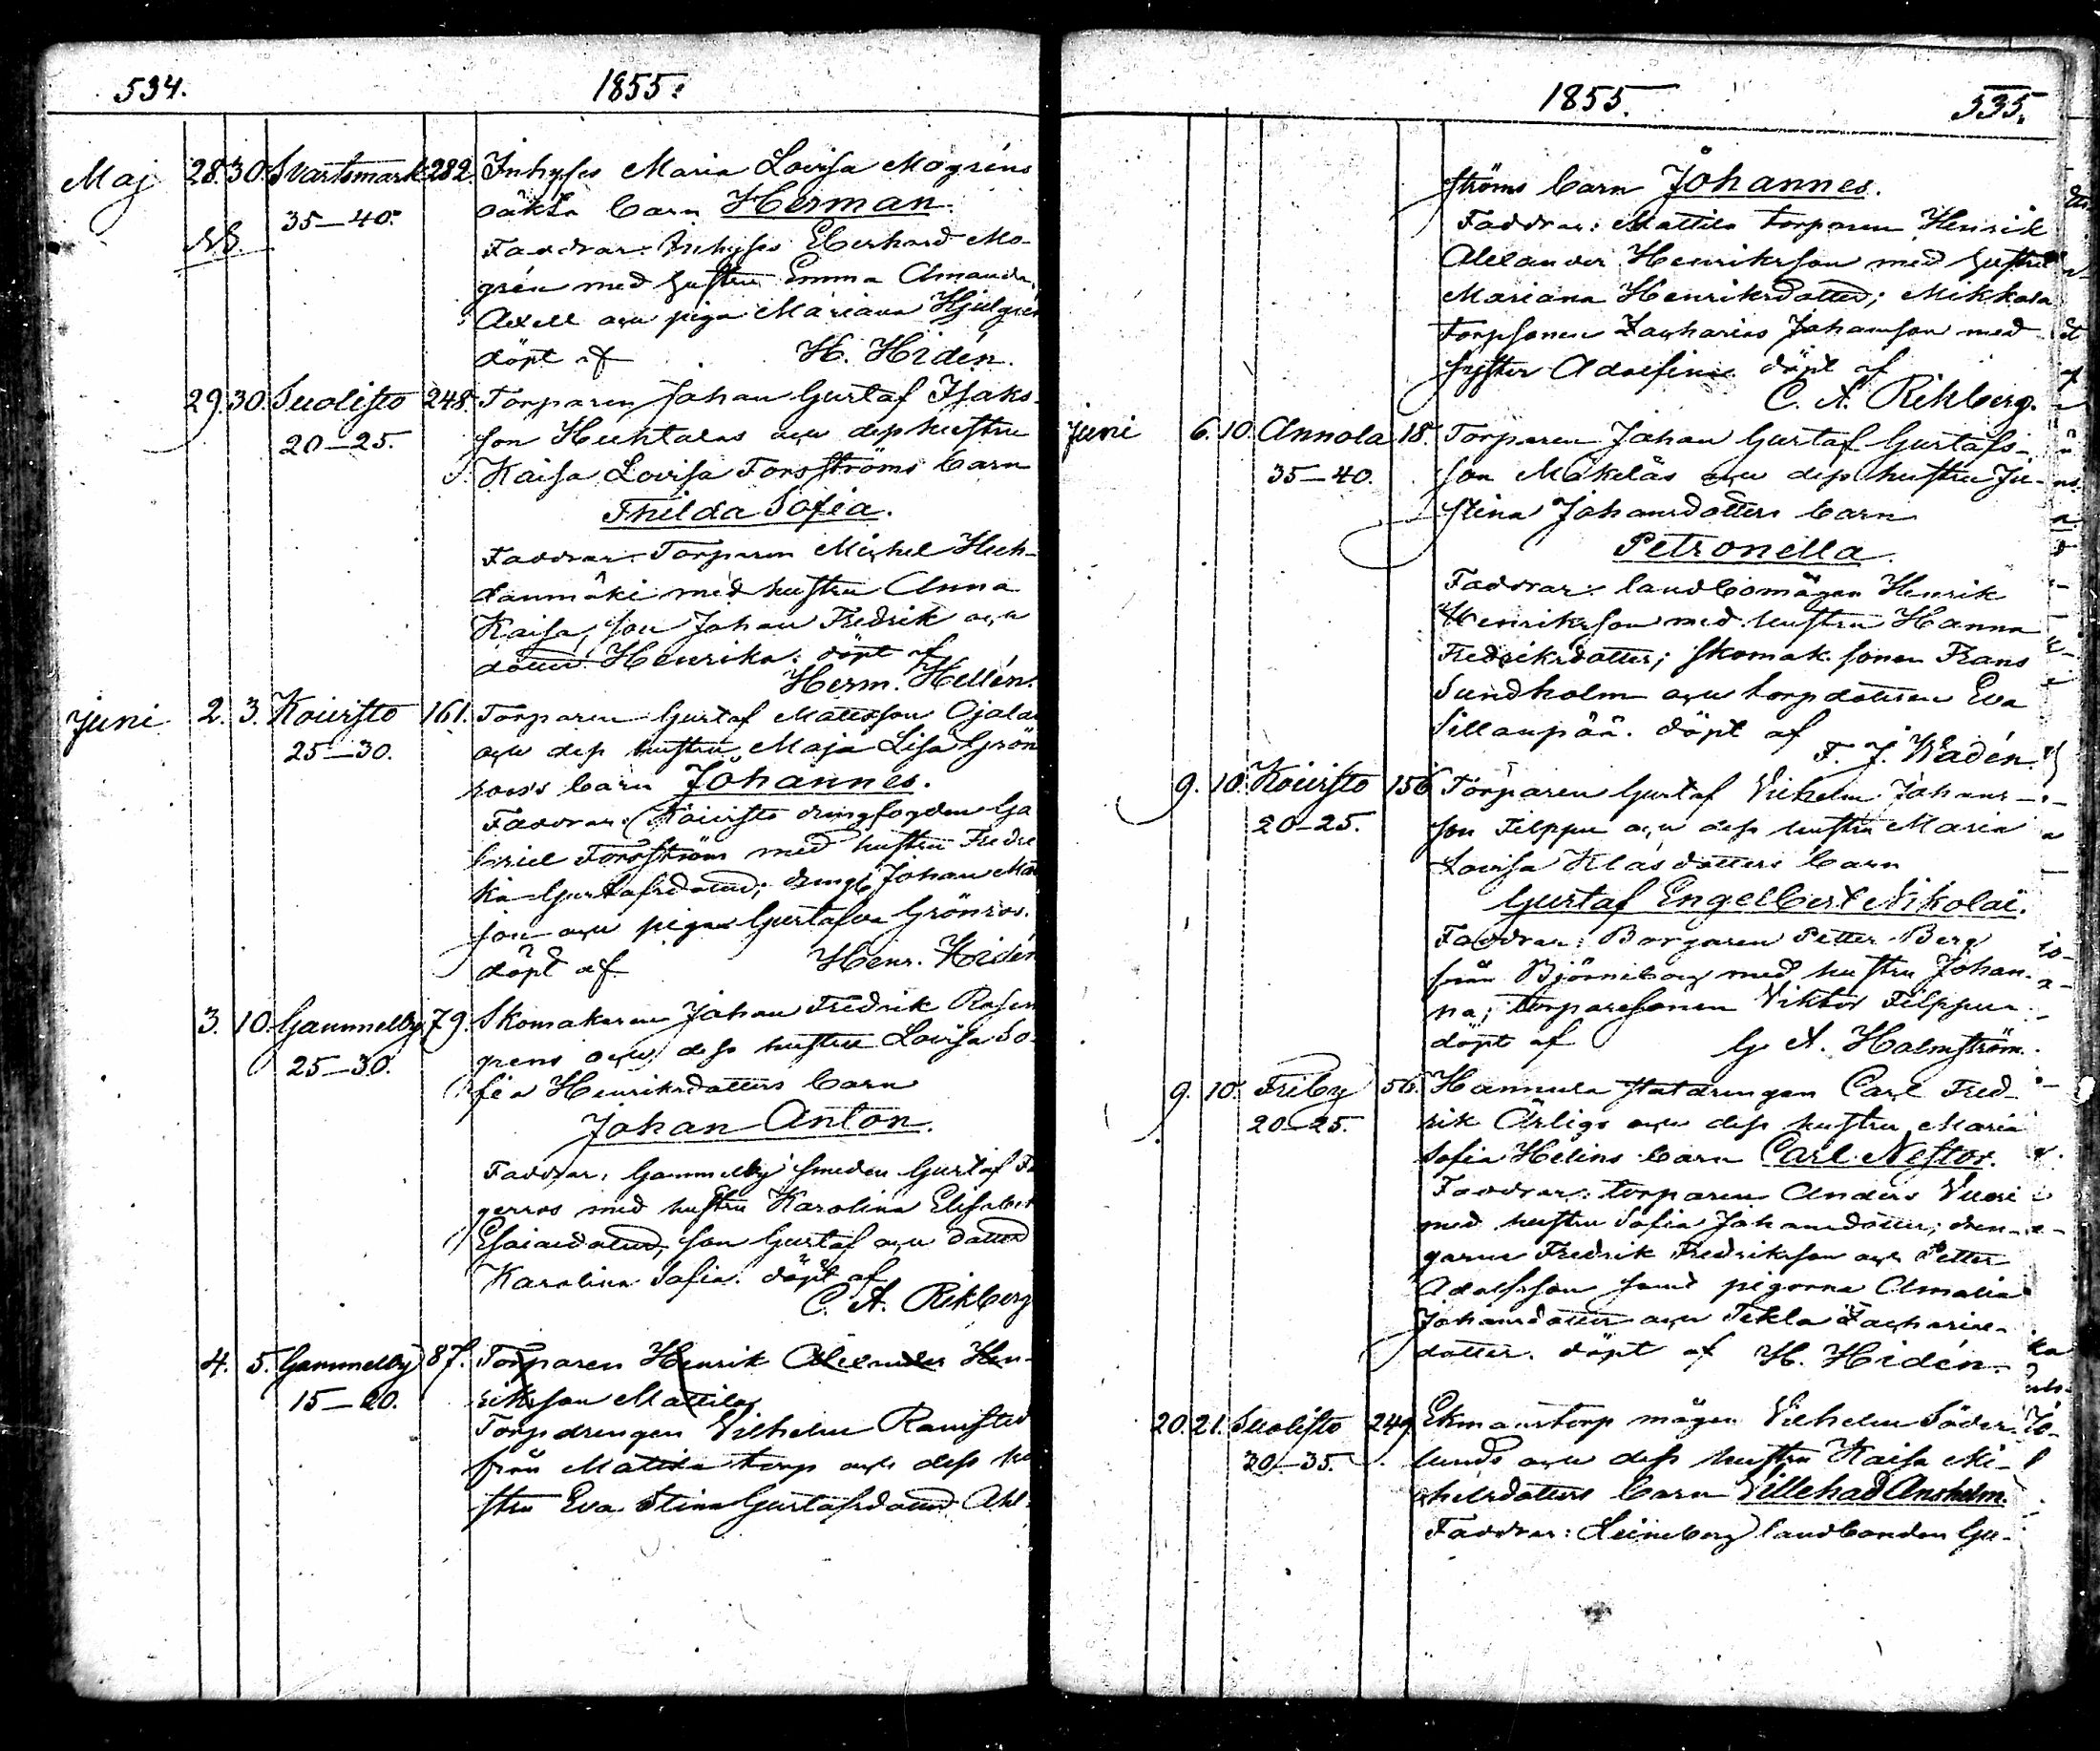 534.
1855.
Maj 28. 30. Svartsmark 282. Inhyses Maria Lovisa Mogréns
35–40. oäkta barn Herman.
NB. Faddrar: Inhyses Eberhard Mo-
grén med hustru Emma Amanda
Axell och piga Mariana Hjelgrén
döpt af H. Hidén.
29. 30. Suolisto 248. Torparen Johan Gustaf Isaks-
20–25. son Huhtalas och dess hustru
Kaisa Lovisa Forsströms barn
Thilda Sofia.
Faddrar: Torparen Michel Huh-
danmäki med hustru Anna
Kaisa, son Johan Fredrik och
dotter Henrika. döpt af
Herm. Hellén.
Juni 2. 3. Koivisto 161. Torparen Gustaf Mattsson Ojalas
25–30. och dess hustru Maja Lisa Grön
roos's barn Johannes.
Faddrar: Koivisto drengfogden Ga
briel Forsström med hustru Fredri
ka Gustafsdotter; dreng Johan Mat
son och pigan Gustafva Grönros.
döpt af Henr. Hidén
3. 10. Gammelby 79. Skomakaren Johan Fredrik Rosen
25–30. grens och dess hustru Lovisa So-
fia Henriksdotters barn
Johan Anton.
Faddrar: Gammelby smeden Gustaf Fa
gerros med hustru Karolina Elisabet
Esaiædotter, son Gustaf och dotter
Karolina Sofia. döpt af
C. A. Rikberg
4. 5. Gammelby 87. Torparen Henrik Alexander Hen-
15–20. rikson Mattilas
Torpdrengen Vilhelm Ramsted
från Mattila torp och dess hu
stru Eva Stina Gustafsdotter Ahl-
1855.
535.
ströms barn Johannes.
Faddrar: Mattila torparen Henrik
Alexander Henriksson med hustru
Mariana Henriksdotter; Mikkola
torpsonen Zacharias Johansson med
syster Adolfina döpt af
C. A. Rikberg.
Juni 6. 10. Annola 18. Torparen Johan Gustaf Gustafs-
35–40. son Mäkeläs och dess hustru Ju-
stina Johansdotters barn
Petronella.
Faddrar: landbomågen Henrik
Henriksson med hustru Hanna
Fredriksdotter; skomak. sonen Frans
Sundholm och torpdottren Eva
Sillanpää. döpt af
F. J. Wadén.
9. 10. Koivisto 156 Torparen Gustaf Vilhelm Johans-
20–25. son Filppu och dess hustru Maria
Lovisa Klasdotters barn
Gustaf Engelbert Nikolai.
Faddrar: Borgaren Petter Berg
från Björneborg med hustru Johan-
na; torparesonen Viktor Filppu
döpt af G. A. Holmström.
9. 10. Friby 56. Hannula statdrengen Carl Fred-
20–25. rik Ärligs och dess hustru Maria
Sofia Helins barn Carl Nestor.
Faddrar: torparen Anders Vuori
med hustru Sofia Johansdotter; dren-
garne Fredrik Fredriksson och Petter
Adolfsson samt pigorna Amalia
Johansdotter och Tekla Zacharie-
dotter. döpt af H. Hidén.
20. 21. Suolisto 249 Ekmanstorp mågen Vilhelm Söder-
30–35. lunds och dess hustru Kaisa Mi-
chelsdotters barn Villehad Anshelm.
Faddrar: Leineberg landbonden Gu-